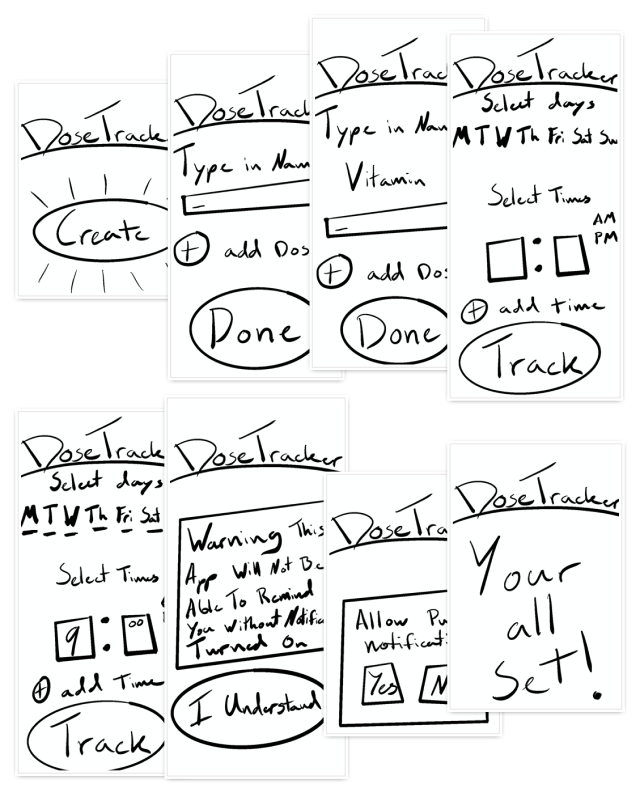 DoseTracke
Create
DoseTrack
Type in Nam
+ add Dos
Done
DoseTrac
Type in Nam
Vitamin
+ add Do
Done
DoseTracker
Select days
M T W Th Fri Sat Su
Select Times
AM
PM
:
+ add time
Track
DoseTracke
Select days
M T W Th Fri Sat
Select Times
9 : 00
+ add Time
Track
DoseTracker
Warning This
App Will Not Be
Able To Remind
You Without Notific
Turned On
I Understand
DoseTra
Allow Pu
notificati
Yes N
DoseTracker
Your
all
Set!